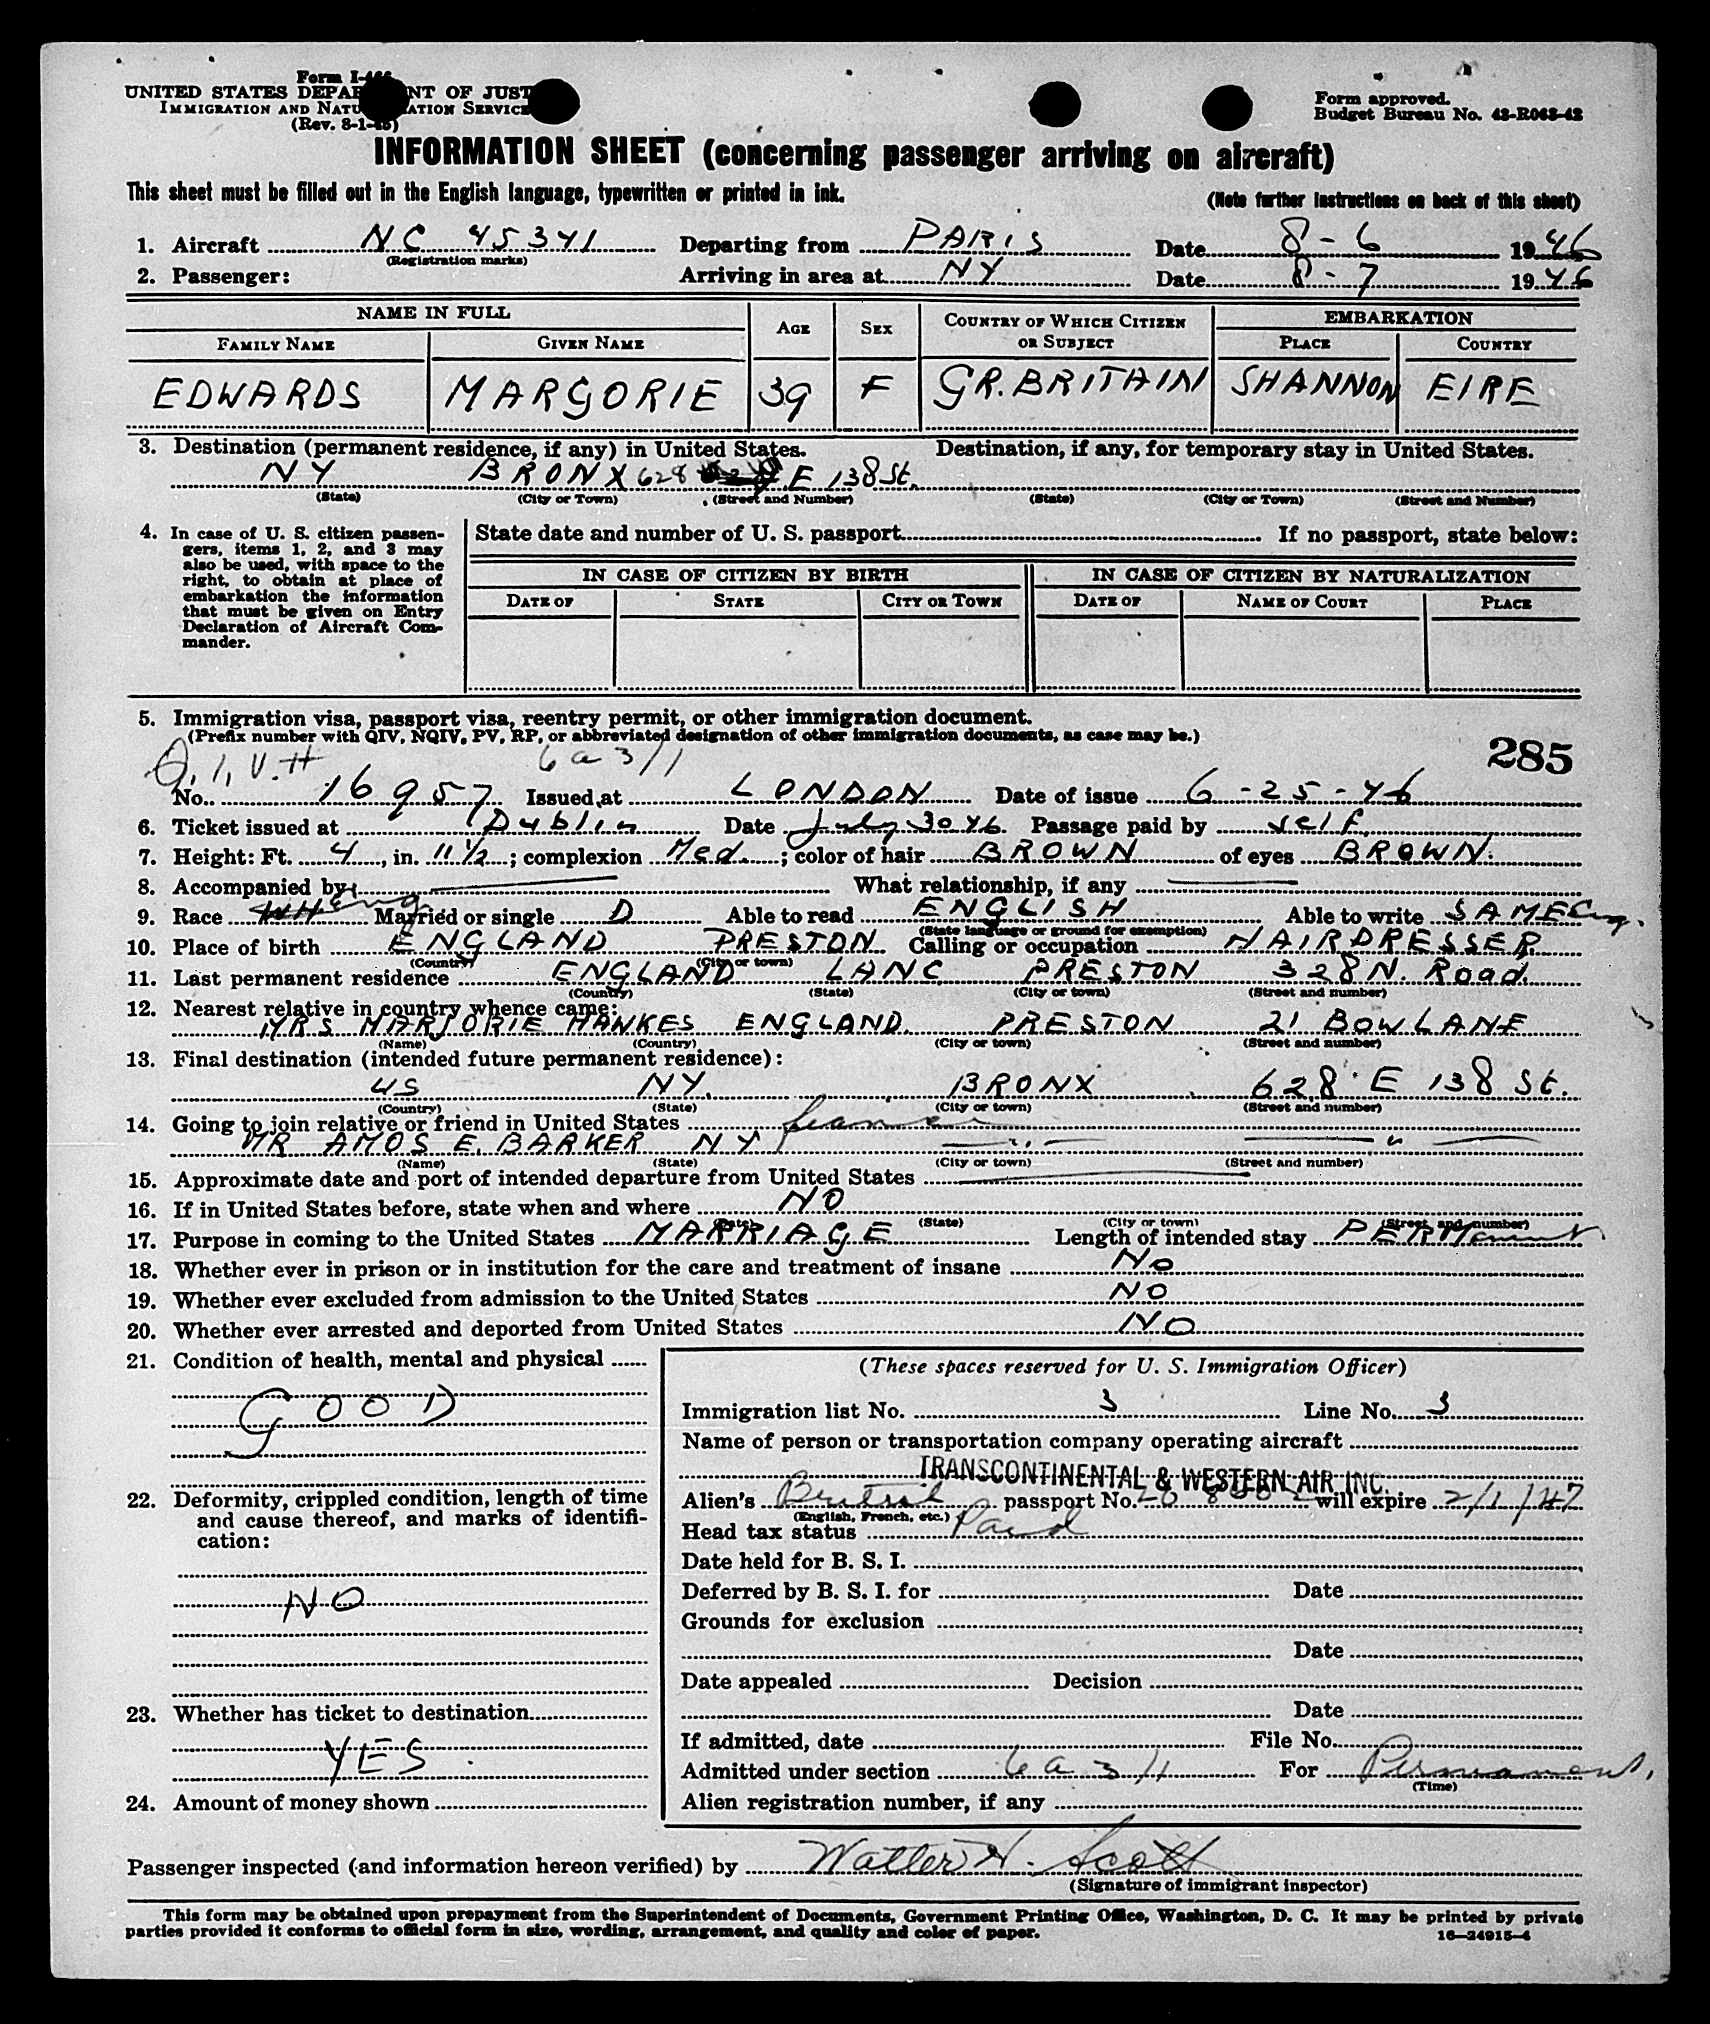 Form I-466
UNITED STATES DEPARTMENT OF JUSTICE
IMMIGRATION AND NATURALIZATION SERVICE
(Rev. 8-1-45)
Form approved.
Budget Bureau No. 43-R063-42
INFORMATION SHEET (concerning passenger arriving on aircraft)
This sheet must be filled out in the English language, typewritten or printed in ink.
(Note further instructions on back of this sheet)
1. Aircraft NC 45341 Departing from PARIS Date 8-6 1946
(Registration marks)
2. Passenger: Arriving in area at NY Date 8-7 1946
NAME IN FULL AGE SEX COUNTRY OF WHICH CITIZEN OR SUBJECT EMBARKATION
FAMILY NAME GIVEN NAME PLACE COUNTRY
EDWARDS MARGORIE 39 F GR.BRITAIN SHANNON EIRE
3. Destination (permanent residence, if any) in United States. Destination, if any, for temporary stay in United States.
NY BRONX 628 E 138 St.
(State) (City or Town) (Street and Number) (State) (City or Town) (Street and Number)
4. In case of U. S. citizen passen-
gers, items 1, 2, and 3 may
also be used, with space to the
right, to obtain at place of
embarkation the information
that must be given on Entry
Declaration of Aircraft Com-
mander.
State date and number of U. S. passport If no passport, state below:
IN CASE OF CITIZEN BY BIRTH IN CASE OF CITIZEN BY NATURALIZATION
DATE OF STATE CITY OR TOWN DATE OF NAME OF COURT PLACE
5. Immigration visa, passport visa, reentry permit, or other immigration document.
(Prefix number with QIV, NQIV, PV, RP, or abbreviated designation of other immigration documents, as case may be.)
285
Q.I.V.# 6a3/1
No. 16957 Issued at LONDON Date of issue 6-25-46
6. Ticket issued at Dublin Date July 30 46. Passage paid by self
7. Height: Ft. 4, in. 11 1/2; complexion Med.; color of hair BROWN of eyes BROWN.
8. Accompanied by What relationship, if any
9. Race Eng Married or single D Able to read ENGLISH Able to write SAME Eng.
(State language or ground for exemption)
10. Place of birth ENGLAND PRESTON Calling or occupation HAIRDRESSER
(Country) (City or town)
11. Last permanent residence ENGLAND LANC PRESTON 328 N. Road.
(Country) (State) (City or town) (Street and number)
12. Nearest relative in country whence came:
MRS MARJORIE HANKES ENGLAND. PRESTON 21 BOW LANE
(Name) (Country) (City or town) (Street and number)
13. Final destination (intended future permanent residence):
US NY. BRONX 628 E 138 St.
(Country) (State) (City or town) (Street and number)
14. Going to join relative or friend in United States
MR AMOS E. BARKER NY — " — — " —
(Name) (State) (City or town) (Street and number)
15. Approximate date and port of intended departure from United States
16. If in United States before, state when and where NO
(Date) (State) (City or town) (Street and number)
17. Purpose in coming to the United States MARRIAGE Length of intended stay PERManent
18. Whether ever in prison or in institution for the care and treatment of insane No
19. Whether ever excluded from admission to the United States NO
20. Whether ever arrested and deported from United States NO
21. Condition of health, mental and physical
GOOD
22. Deformity, crippled condition, length of time
and cause thereof, and marks of identifi-
cation:
NO
23. Whether has ticket to destination
YES.
24. Amount of money shown
(These spaces reserved for U. S. Immigration Officer)
Immigration list No. 3 Line No. 3
Name of person or transportation company operating aircraft
TRANSCONTINENTAL & WESTERN AIR INC.
Alien's British passport No. will expire 2/1/47
(English, French, etc.)
Head tax status Paid
Date held for B. S. I.
Deferred by B. S. I. for Date
Grounds for exclusion
Date
Date appealed Decision
Date
If admitted, date File No.
Admitted under section 6a3/1 For Permanent.
(Time)
Alien registration number, if any
Passenger inspected (and information hereon verified) by Walter H. Scott
(Signature of immigrant inspector)
This form may be obtained upon prepayment from the Superintendent of Documents, Government Printing Office, Washington, D. C. It may be printed by private
parties provided it conforms to official form in size, wording, arrangement, and quality and color of paper.
16—24915-4